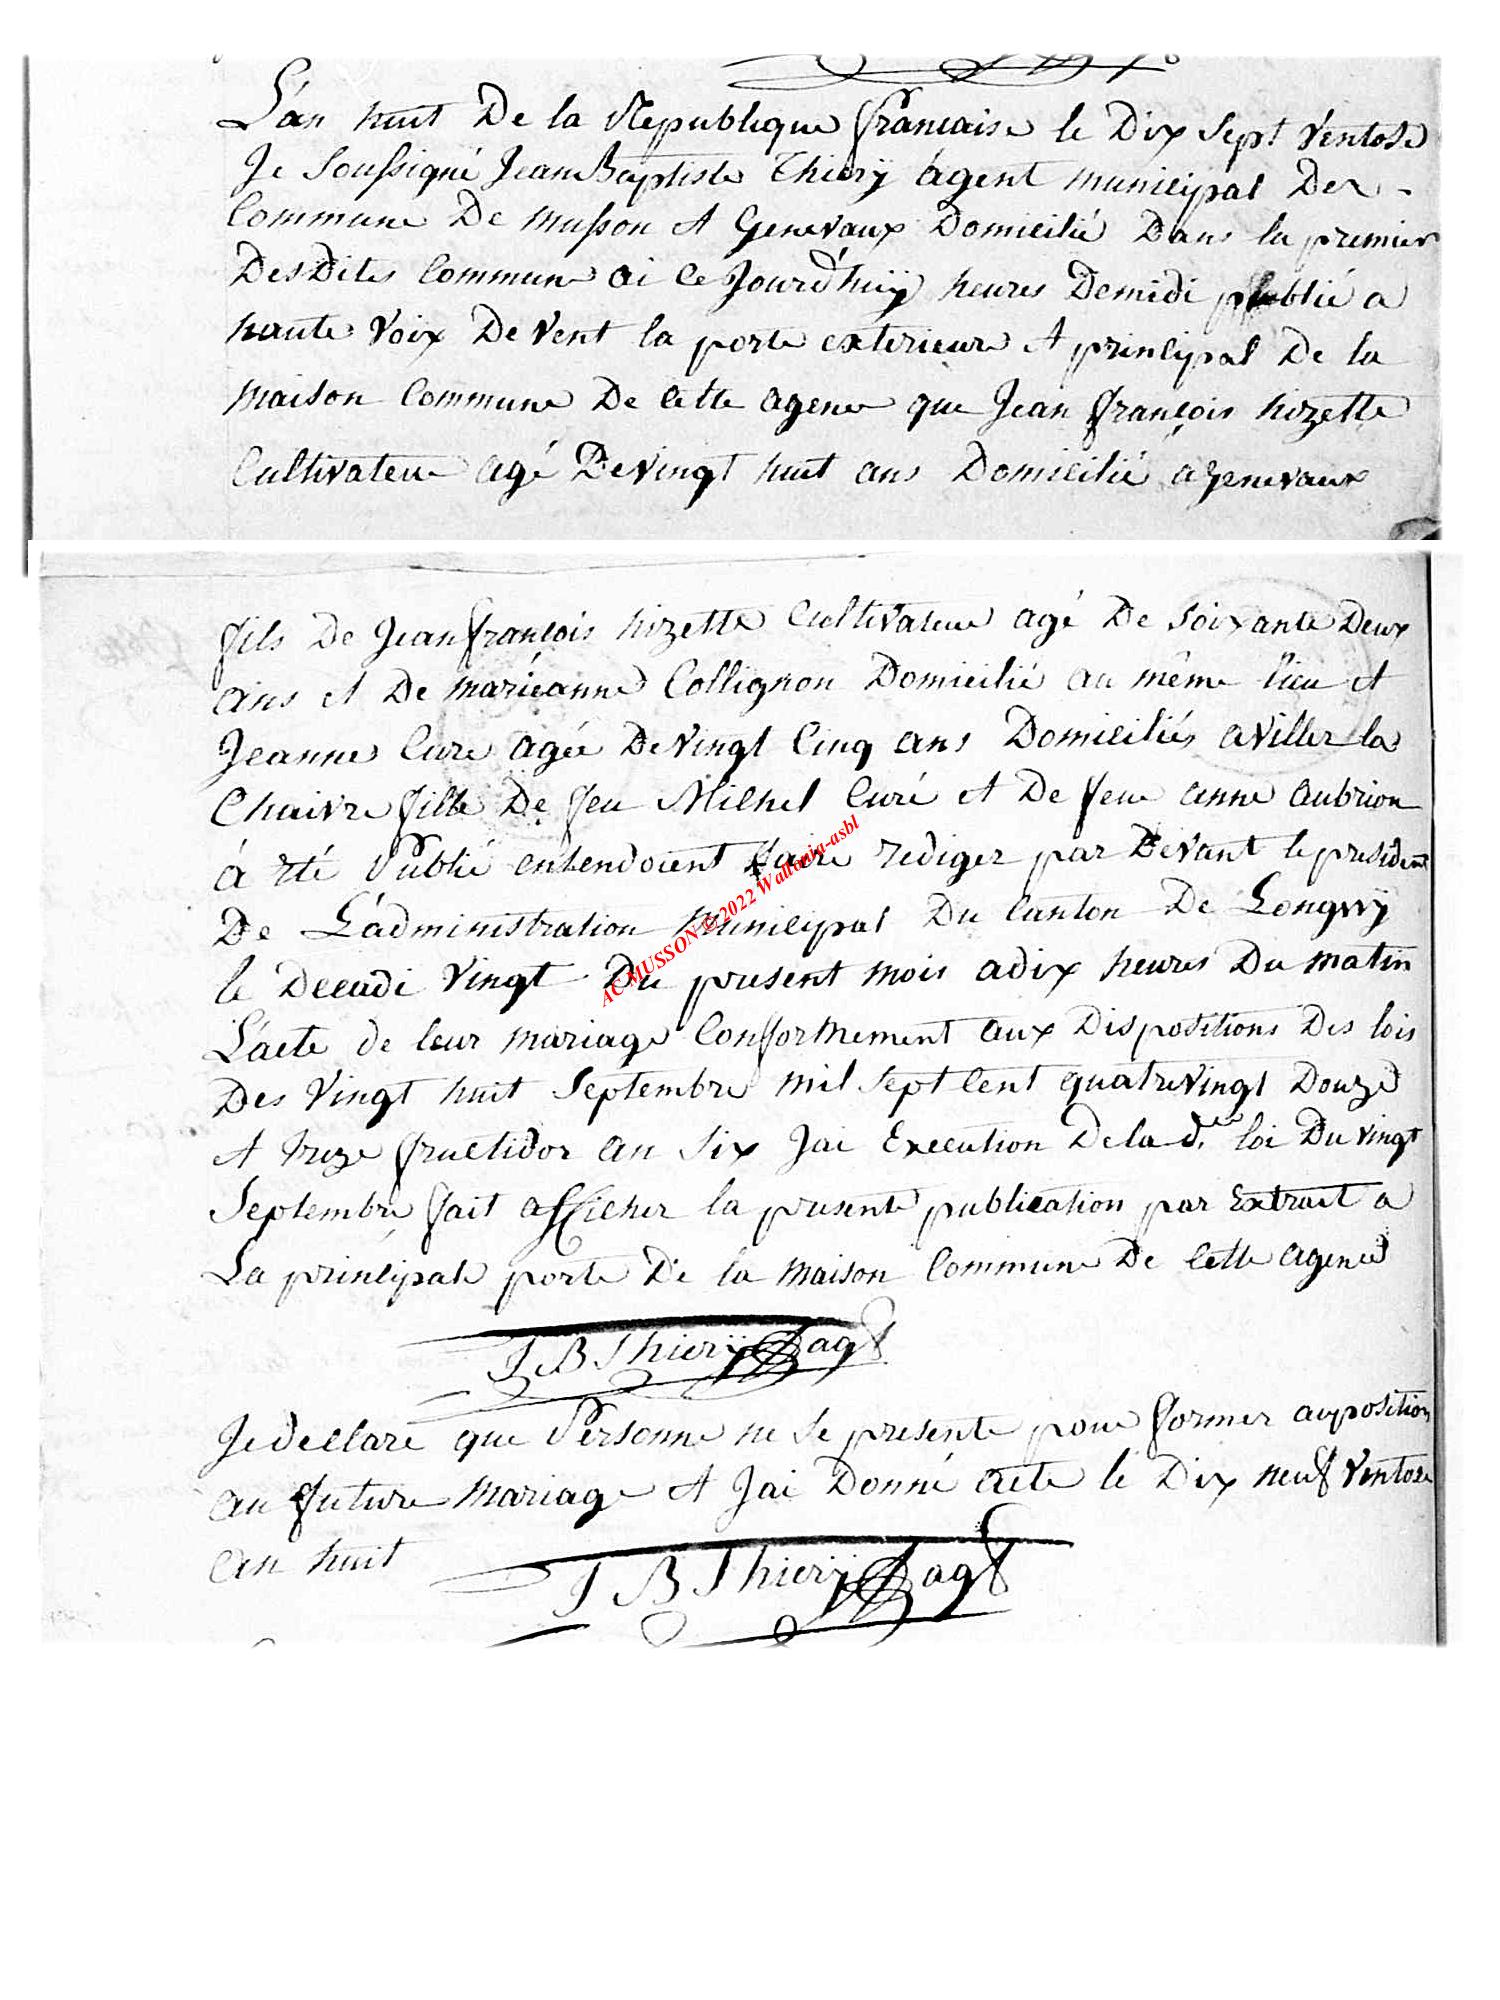 L'an huit De la Republique française le Dix Sept Ventose
Je Soussigné Jean Baptiste Thierÿ agent municipal Des
Commune De Musson et Genevaux Domicilié Dans la premier
DesDites Commune ai ce Jourd'huÿ heures Demidi publié a
haute Voix DeVent la porte exterieure et principal De la
Maison Commune De cette agence que Jean françois hizette
Cultivateur agé De Vingt huit ans Domicilié a genevaux
fils De Jean françois hizette Cultivateur agé De Soixante Deux
ans et De marieanne Collignon Domicilié au même lieu et
Jeanne Curé agée De Vingt Cinq ans Domiciliés a Viller la
Chaivre fille De feu Michel Curé et De feue anne aubrion
à été Publié entendoient faire rediger par Devant le president
De L'administration Municipal Du Canton De Longwÿ
le Decadi Vingt Du present mois a dix heures Du matin
L'acte de leur mariage Conformement aux Dispositions Des lois
Des Vingt huit Septembre mil Sept Cent quatre Vingt Douze
et treze fructidor an Six Jai Execution De la d. loi Du vingt
Septembre fait afficher la presente publication par Extrait a
La principale porte De la Maison Commune De Cette agence
J B Thierÿ agt
Je declare que Personne ne Se presente pour former auposition
au future mariage et Jai Donné acte le Dix neuf Ventose
an huit
J B Thierÿ agt
AC MUSSON © 2022 Wallonia-asbl